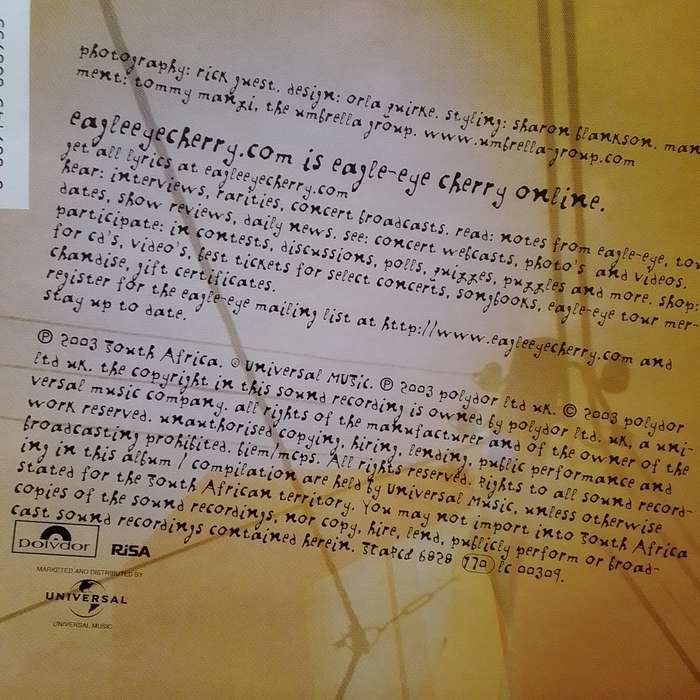 photography: rick guest. design: orla quirke. styling: sharon blankson. man
ment: tommy manzi, the umbrella group. www.umbrella-group.com
eagleeyecherry.com is eagle-eye cherry online.
get all lyrics at eagleeyecherry.com
hear: interviews, rarities, concert broadcasts. read: notes from eagle-eye, to
dates, show reviews, daily news. see: concert webcasts, photo's and videos.
participate: in contests, discussions, polls, quizzes, puzzles and more. shop:
for cd's, video's, best tickets for select concerts, songbooks, eagle-eye tour mer-
chandise, gift certificates.
register for the eagle-eye mailing list at http://www.eagleeyecherry.com and
stay up to date.
℗ 2003 South Africa. © Universal Music. ℗ 2003 polydor ltd uk. © 2003 polydor
ltd uk. the copyright in this sound recording is owned by polydor ltd. uk, a uni-
versal music company. all rights of the manufacturer and of the owner of the
work reserved. unauthorised copying, hiring, lending, public performance and
broadcasting prohibited. biem/mcps. All rights reserved. Rights to all sound record-
ing in this album / compilation are held by Universal Music, unless otherwise
stated for the South African territory. You may not import into South Africa
copies of the sound recordings, nor copy, hire, lend, publicly perform or broad-
cast sound recordings contained herein. STARCD 6828 770 LC 00309.
polydor RiSA
MARKETED AND DISTRIBUTED BY
UNIVERSAL
UNIVERSAL MUSIC